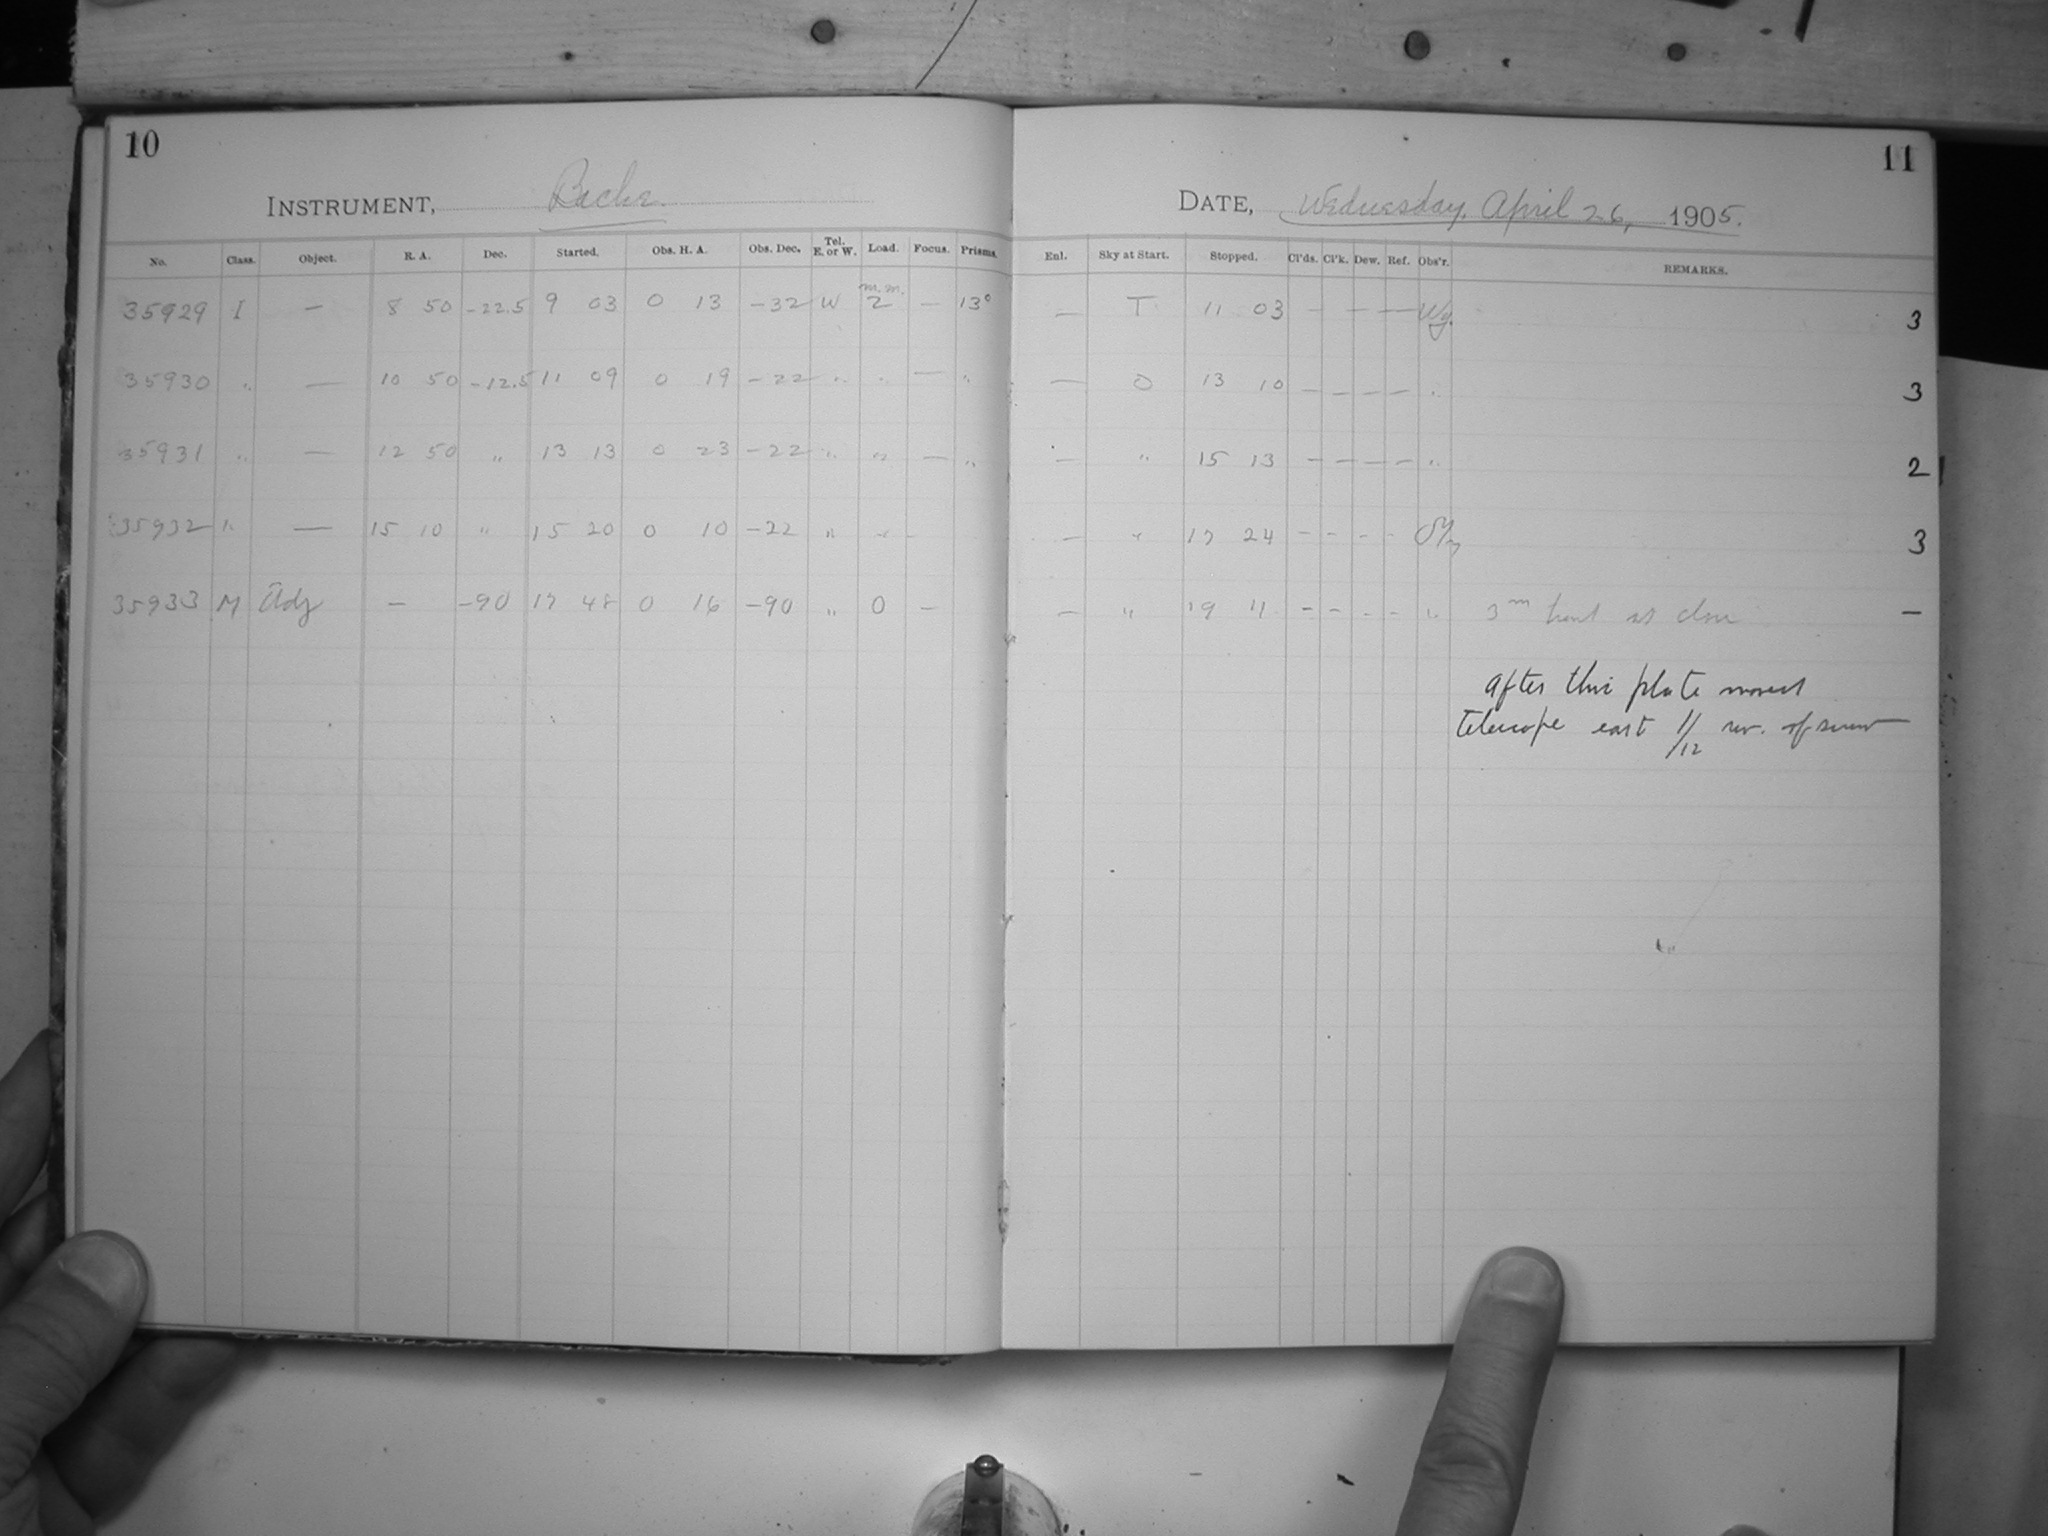 10
INSTRUMENT, Bache.
No. Class. Object. R. A. Dec. Started. Obs. H. A. Obs. Dec. Tel. E. or W. Load. Focus. Prisms.
35929 I — 8 50 -22.5 9 03 0 13 -32 W 2 m.m. — 13°
35930 " — 10 50 -12.5 11 09 0 19 -22 " " — "
35931 " — 12 50 " 13 13 0 23 -22 " " — "
35932 " — 15 10 " 15 20 0 10 -22 " " -
35933 M Adj — -90 17 48 0 16 -90 " 0 —
11
DATE, Wednesday, April 26, 1905.
Enl. Sky at Start. Stopped. Cl'ds. Cl'k. Dew. Ref. Obs'r. REMARKS.
— T 11 03 — — — Wy. 3
— O 13 10 — — — — " 3
— " 15 13 — — — — " 2
— " 17 24 - - - - 3
— " 19 11 - - - - " 3m at close —
After this plate moved
telescope east 1/12 rev. of screw